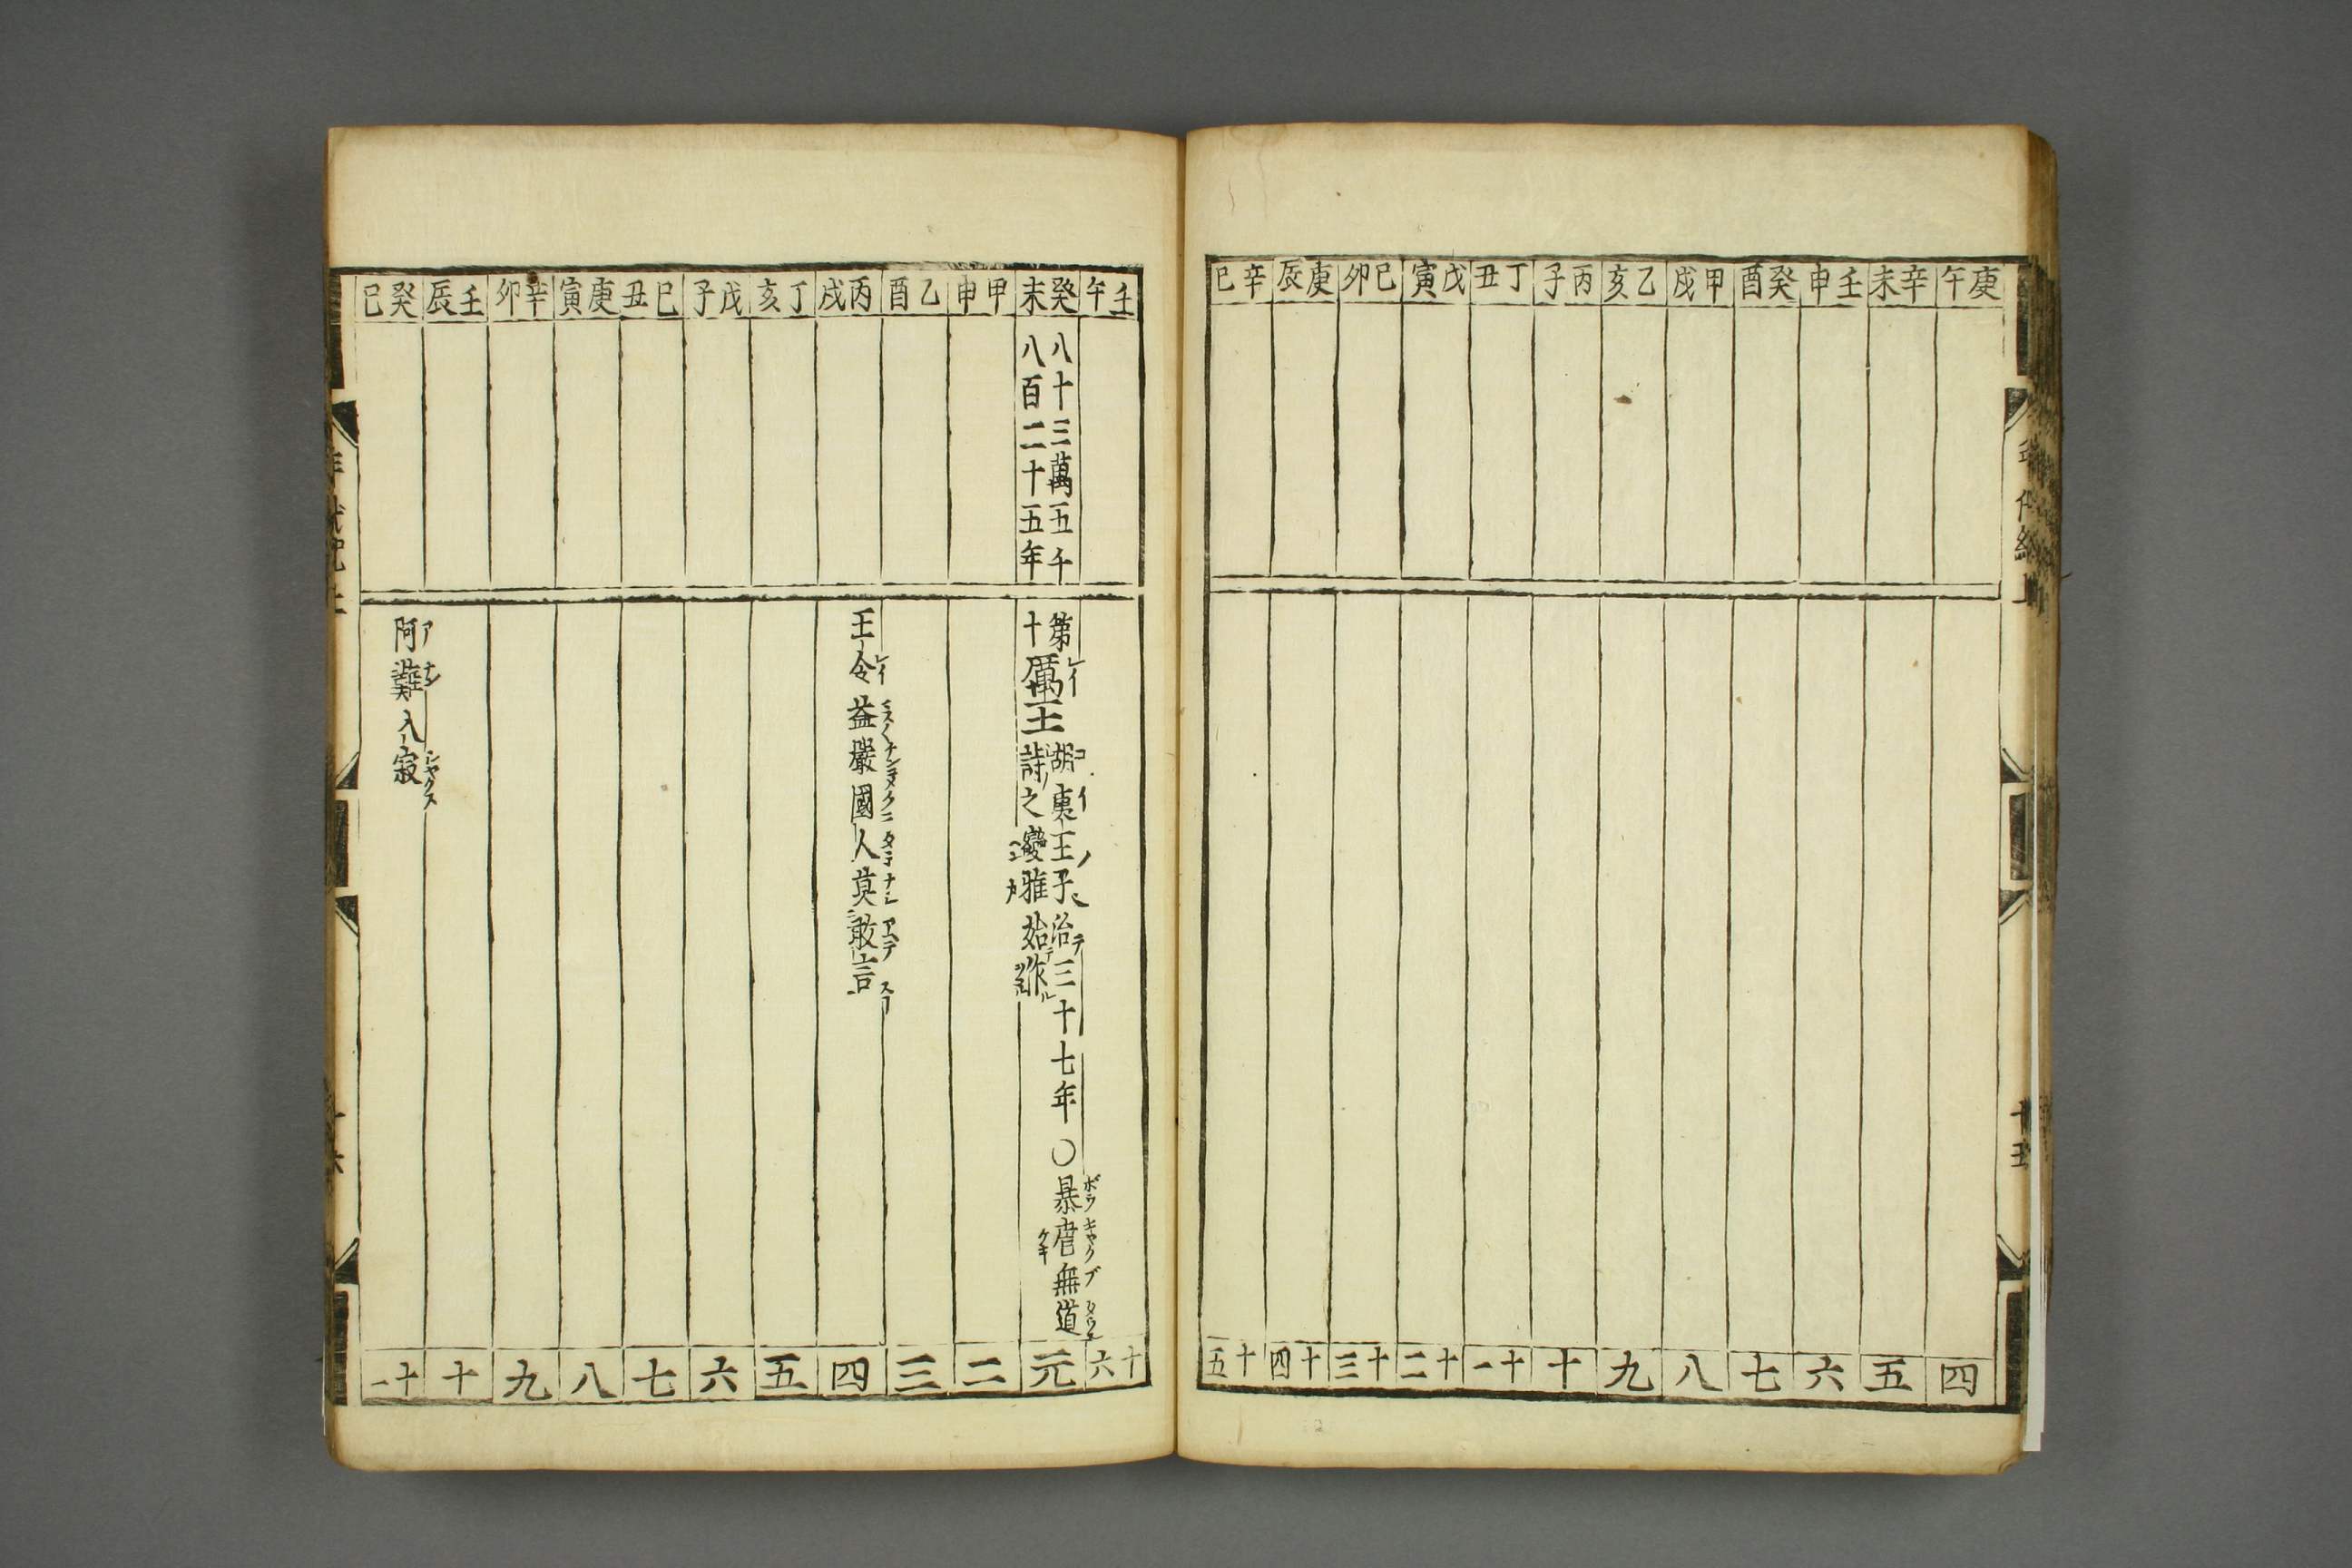 庚午
辛未
壬申
癸酉
甲戌
乙亥
丙子
丁丑
戊寅
巳卯
庚辰
辛巳
四
五
六
七
八
九
十
十一
十二
十三
十四
十五
壬午
癸未
甲申
乙酉
丙戌
丁亥
戊子
巳丑
庚寅
辛卯
壬辰
癸巳
八十三萬五千
八百二十五年
第十厲王
胡夷王子治三十七年〇暴虐無道
詩之變雅始作
王令益嚴國人莫敢言
阿難入寂
十六
元
二
三
四
五
六
七
八
九
十
十一